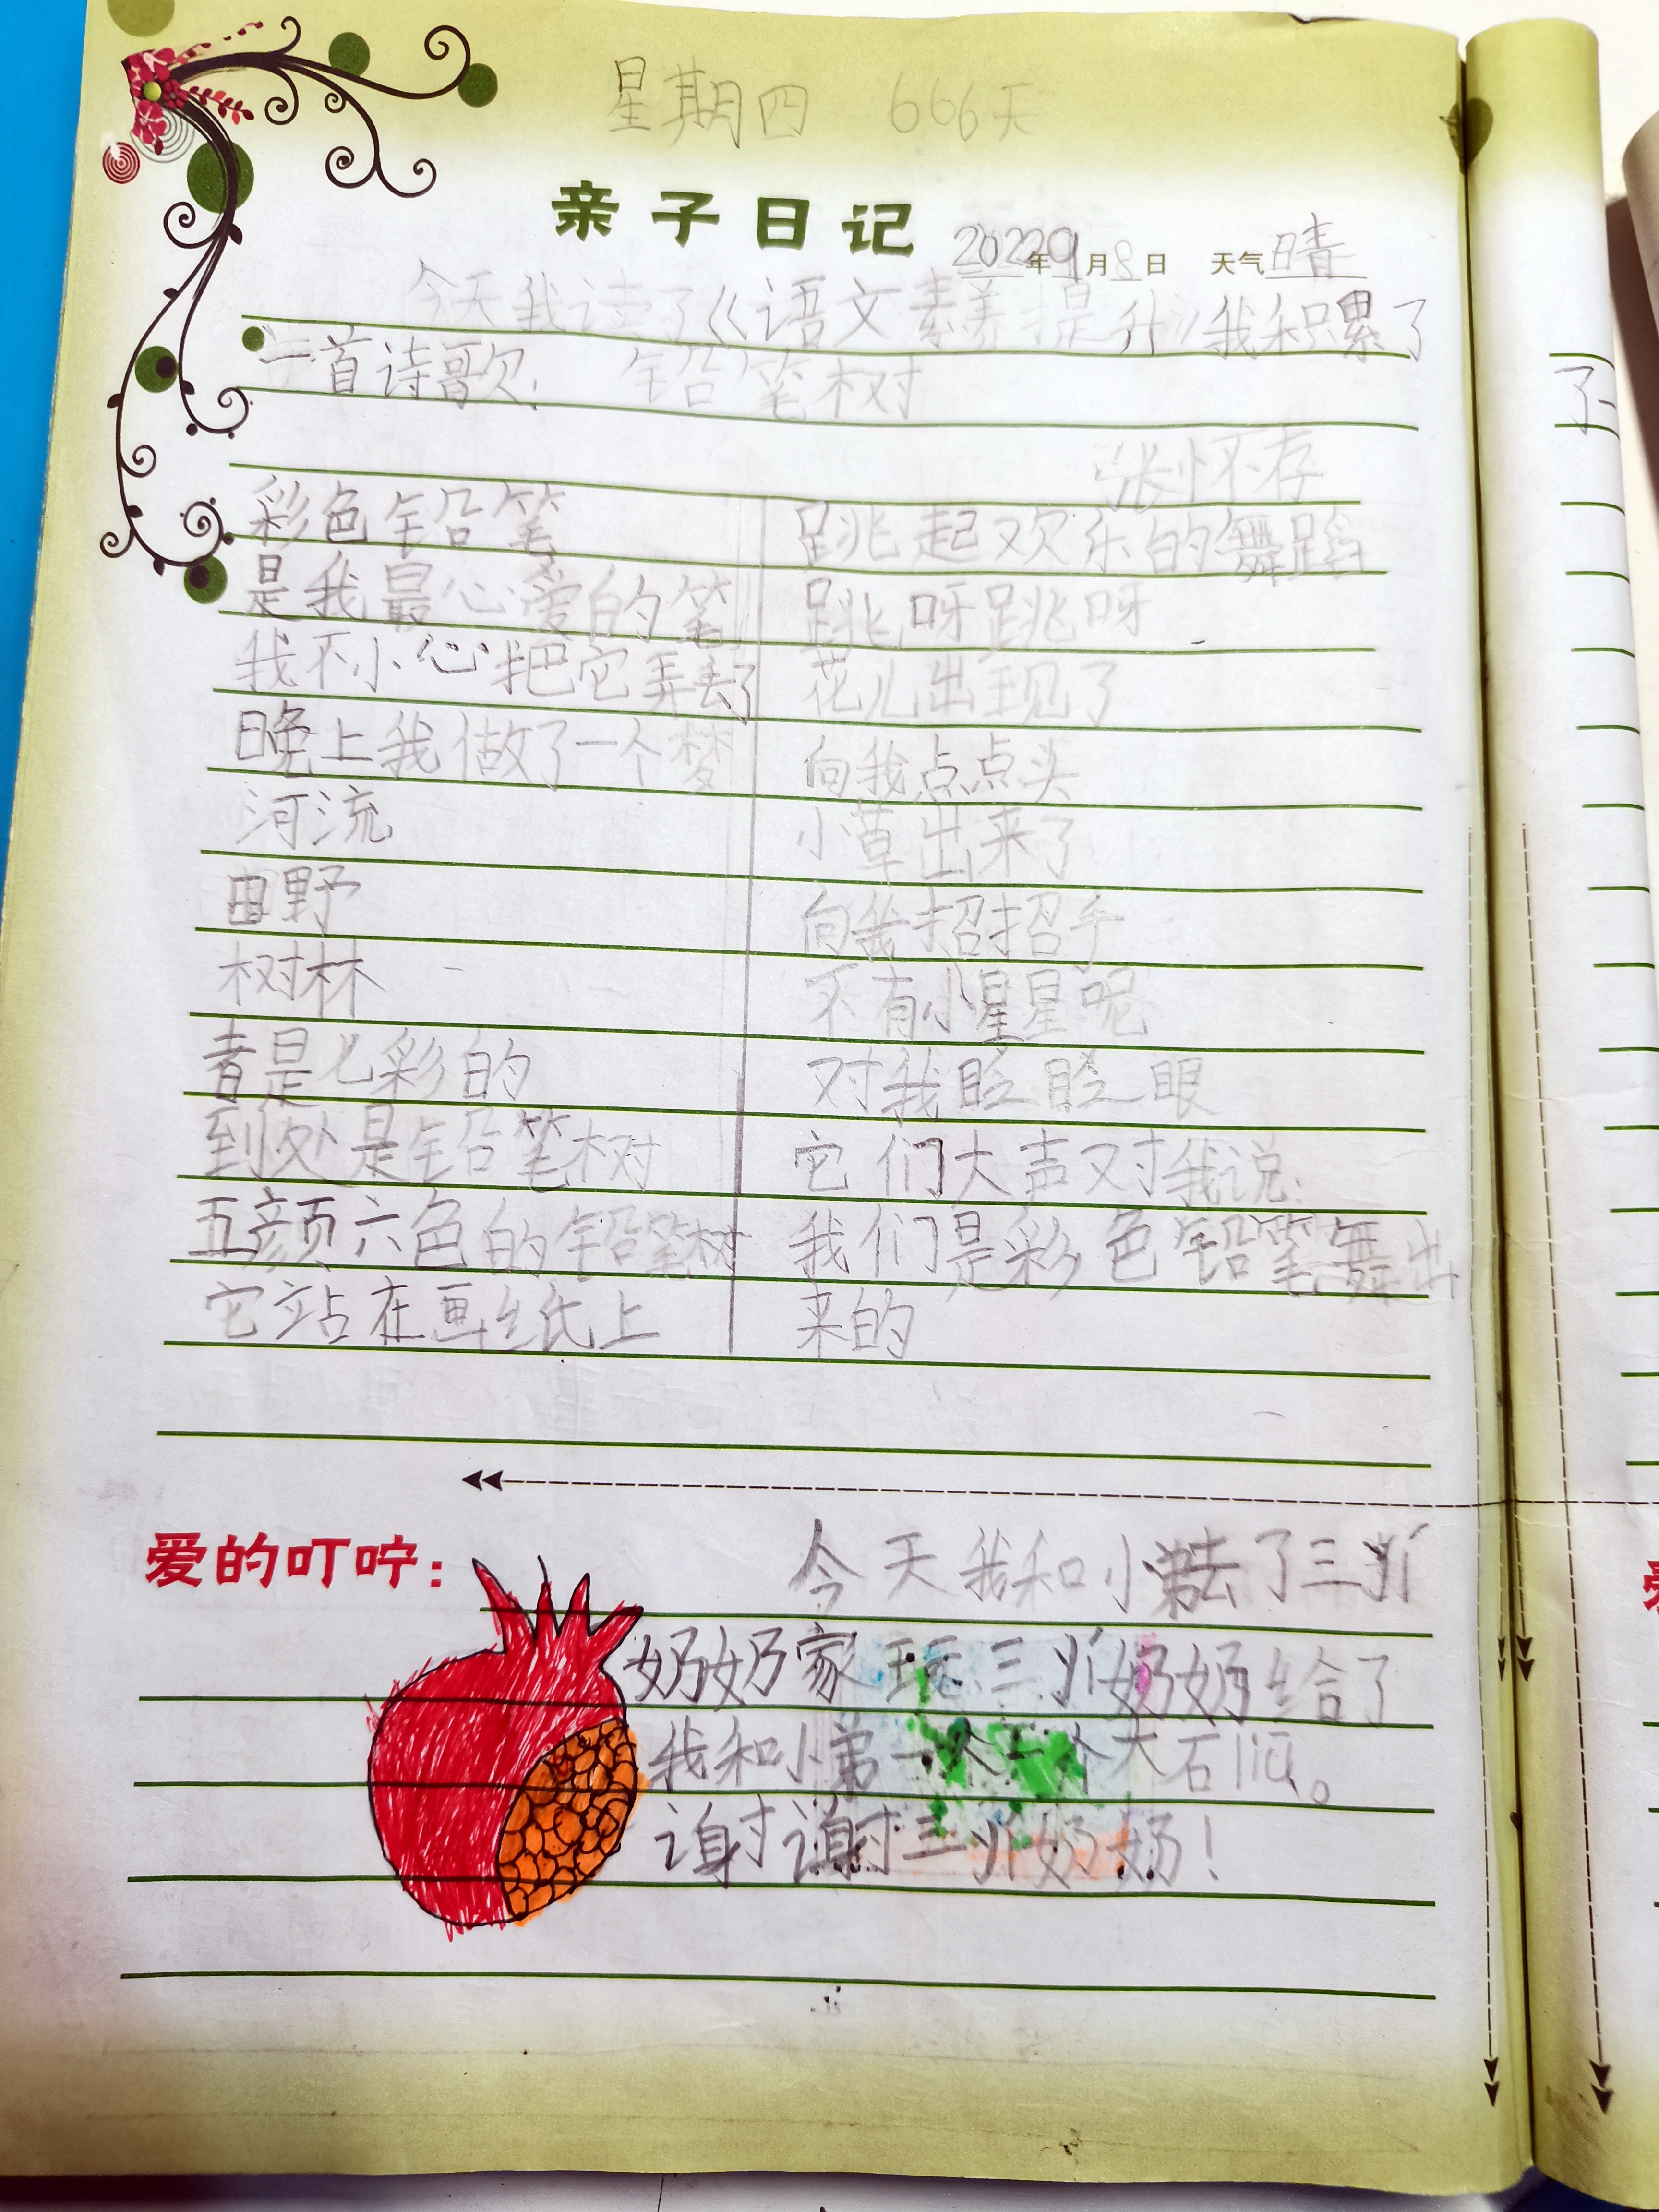 星期四 666天
亲子日记 2022年9月8日 天气晴
今天我读了《语文素养提升》我积累了
一首诗歌: 铅笔树
张怀存
彩色铅笔
是我最心爱的笔
我不小心把它弄丢了
晚上我做了一个梦
河流
田野
树林
者是七彩的
到处是铅笔树
五颜六色的铅笔树
它站在画纸上
跳起欢乐的舞蹈
跳呀跳呀
花儿出现了
向我点点头
小草出来了
向我招招手
不有小星星呢
对我眨眨眼
它们大声对我说:
我们是彩色铅笔舞出
来的
爱的叮咛:
今天我和小弟去了三
奶奶家玩三奶奶给了
我和小弟一个一个大石
谢谢三奶奶!
了